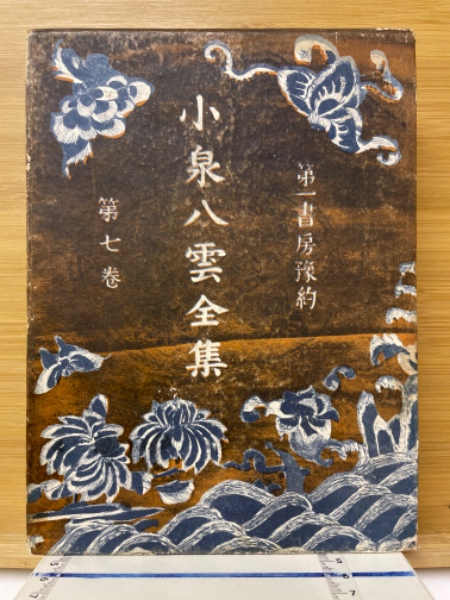 第一書房豫約
小泉八雲全集
第七卷